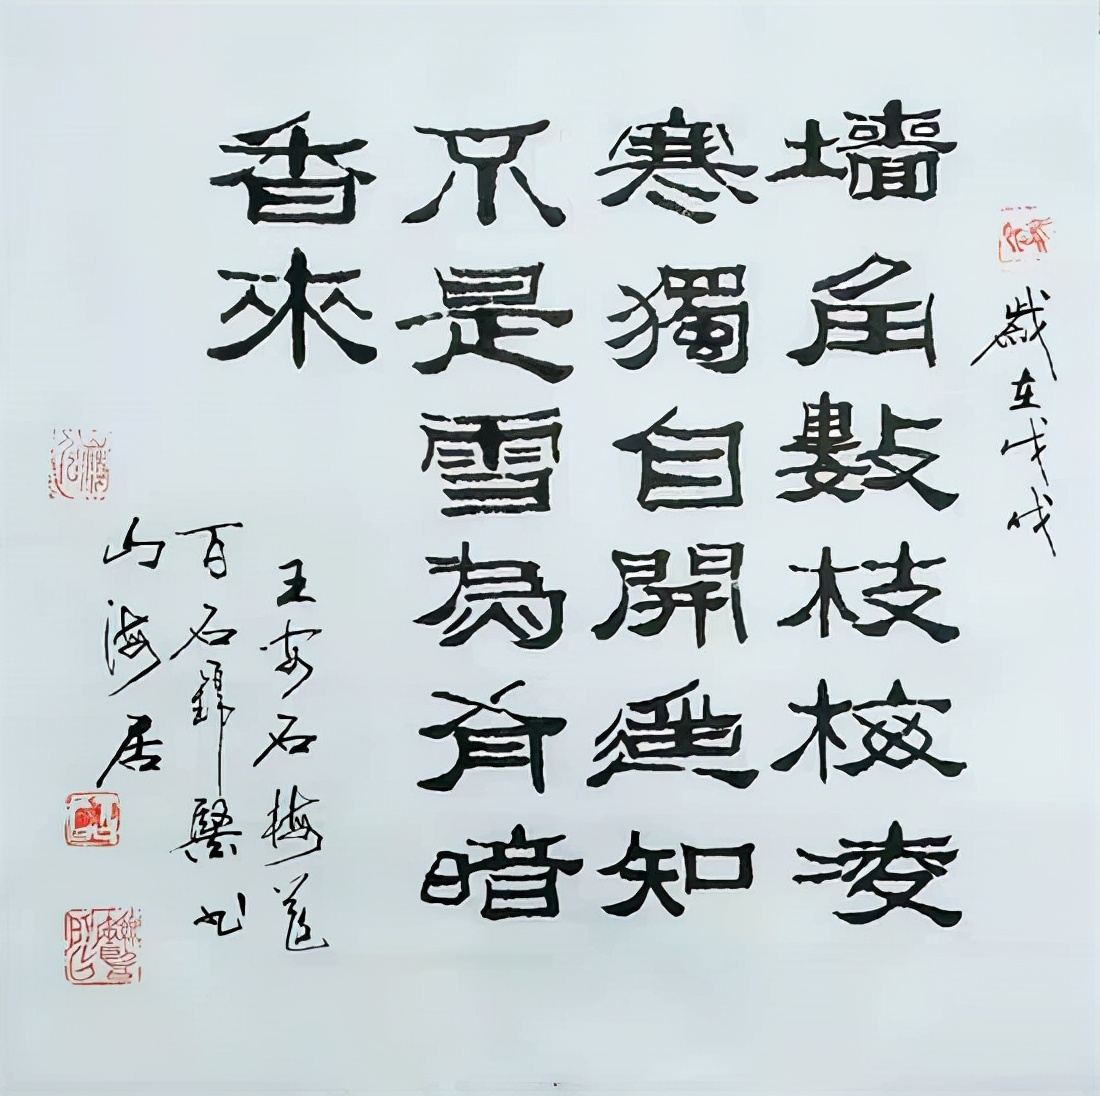 歲在戊戌
墙角數枝梅凌
寒獨自開遥知
不是雪為有暗
香來
王安石梅
百石
山海居